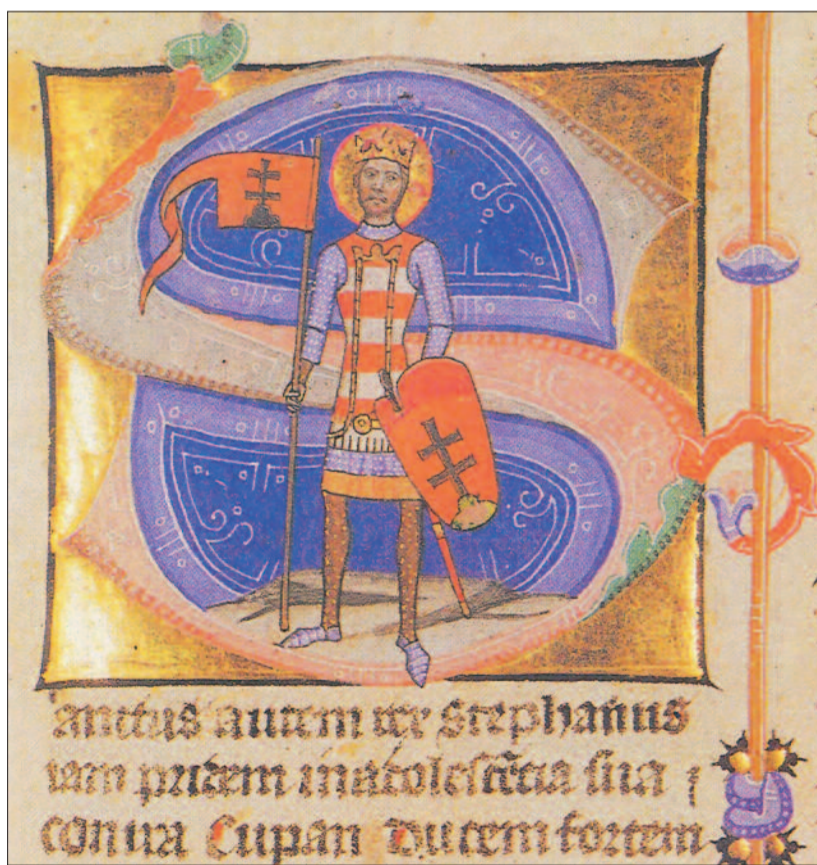 Sanctus autem rex Stephanus
iam pridem inadolescẽcia sua
contra Cupan ducem fortem